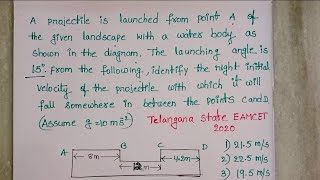 A projectile is launched from point A of
the given landscape with a water body as
shown in the diagram, The launching angle is
15°. From the following, identify the right initial
velocity of the projectile with which it will
fall somewhere in between the points C and D.
(Assume g=10 ms⁻²) Telangana State EAMCET
2020
A B C D
8m 12m 4.2m
1) 21.5 m/s
2) 22.5 m/s
3) 19.5 m/s